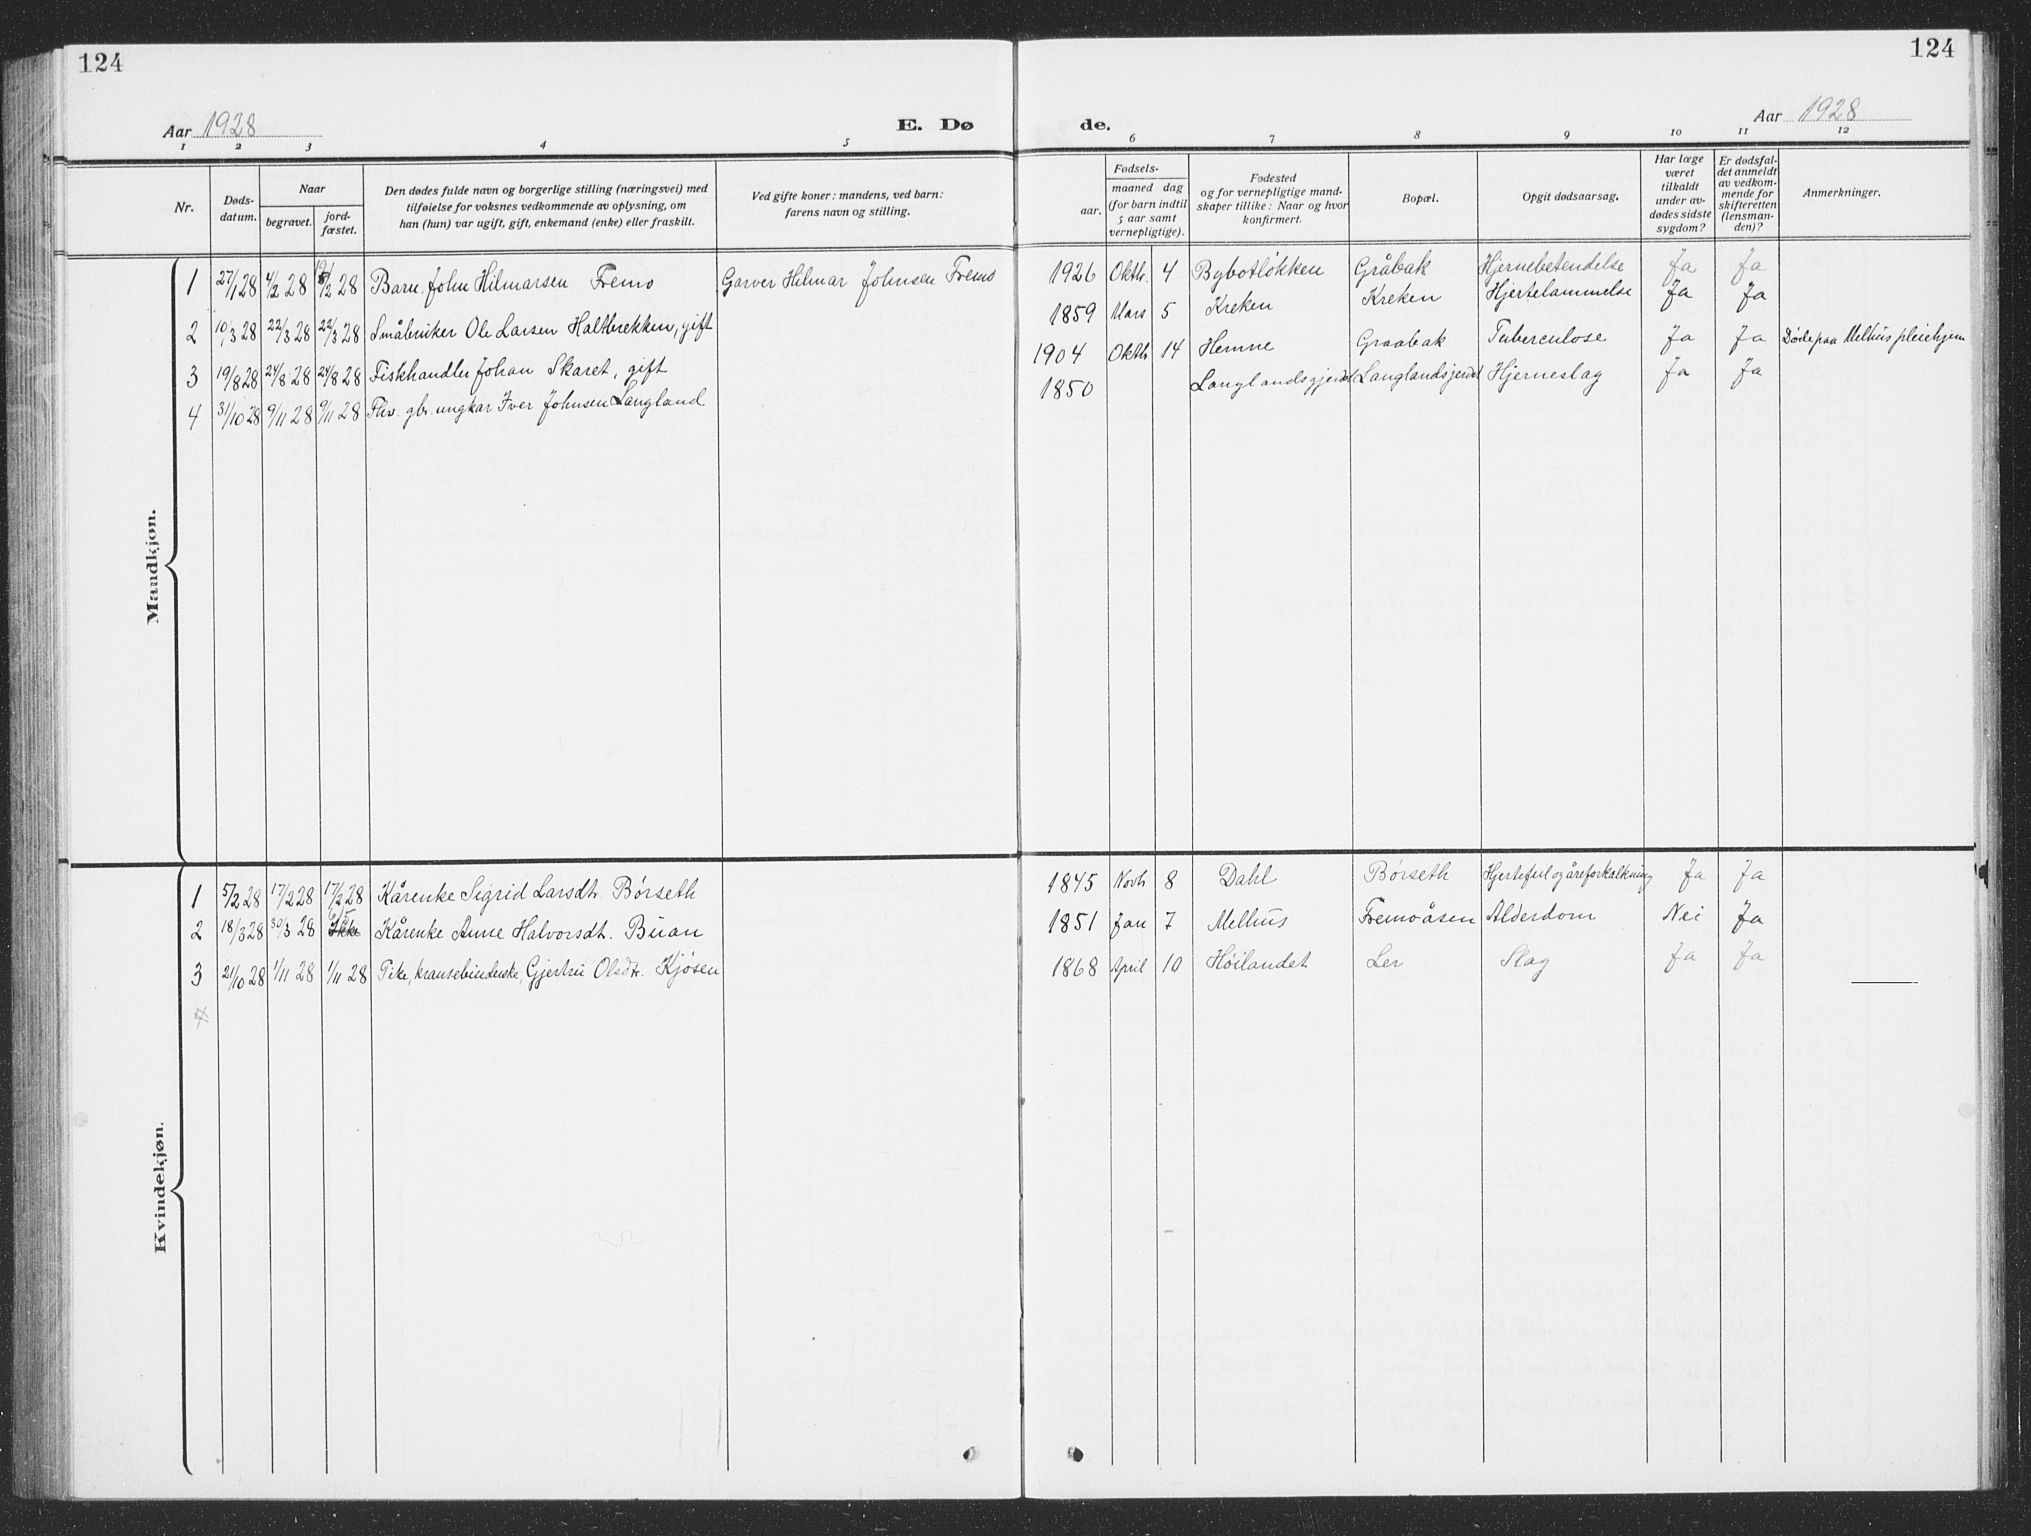 124
124
Aar 1928
E. Dø
de.
Aar 1928
1 2 3 4 5
6 7 8 9 10 11 12
Nr.
Døds-
datum.
Naar
begravet.
jord-
fæstet.
Den dødes fulde navn og borgerlige stilling (næringsvei) med
tilføielse for voksnes vedkommende av oplysning, om
han (hun) var ugift, gift, enkemand (enke) eller fraskilt.
Ved gifte koner: mandens, ved barn:
farens navn og stilling.
Fødsels-
aar.
maaned dag
(for barn indtil
5 aar samt
vernepligtige).
Fødested
og for vernepligtige mand-
skaper tillike: Naar og hvor
konfirmert.
Bopæl.
Opgit dødsaarsag.
Har læge
været
tilkaldt
under av-
dødes sidste
sygdom?
Er dødsfal-
det anmeldt
av vedkom-
mende for
skifteretten
(lensman-
den)?
Anmerkninger.
Maandkjøn.
1 27/1 28 4/2 28 /2 28 Barn. John Hilmarsen Fremo Garver Hilmar Johnsen Fremo 1926 Oktb. 4 Bybotløkken Gråbak Hjernebetendelse Ja Ja
2 10/3 28 22/3 28 22/3 28 Småbruker Ole Larsen Haltbrekken, gift 1859 Mars 5 Kreken Kreken Hjertelammelse Ja Ja
3 19/8 28 24/8 28 24/8 28 Fiskhandler Johan Skaret, gift 1904 Oktb 14 Hemne Graabak Tuberculose Ja Ja Døde paa Melhus pleiehjem
4 31/10 28 9/11 28 9/11 28 Fhv. gbr. ungkar Iver Johnsen Langland 1850 Langlandsgjerdet Langlandsjerdet Hjerneslag Ja Ja
Kvindekjøn.
1 5/2 28 17/2 28 17/2 28 Kårenke Sigrid Larsdtr. Børseth 1845 Novb 8 Dahl Børseth Hjertefeil og åreforkalkning Ja Ja
2 18/3 28 30/3 28 Ikke Kårenke Anne Halvorsdt. Buan 1851 Jan 7 Melhus Fremoåsen Alderdom Nei Ja
3 21/10 28 1/11 28 1/11 28 Pike, kransebinderske, Gjertru Olsdtr. Kjøsen 1868 April 10 Høilandet Ler Slag Ja Ja